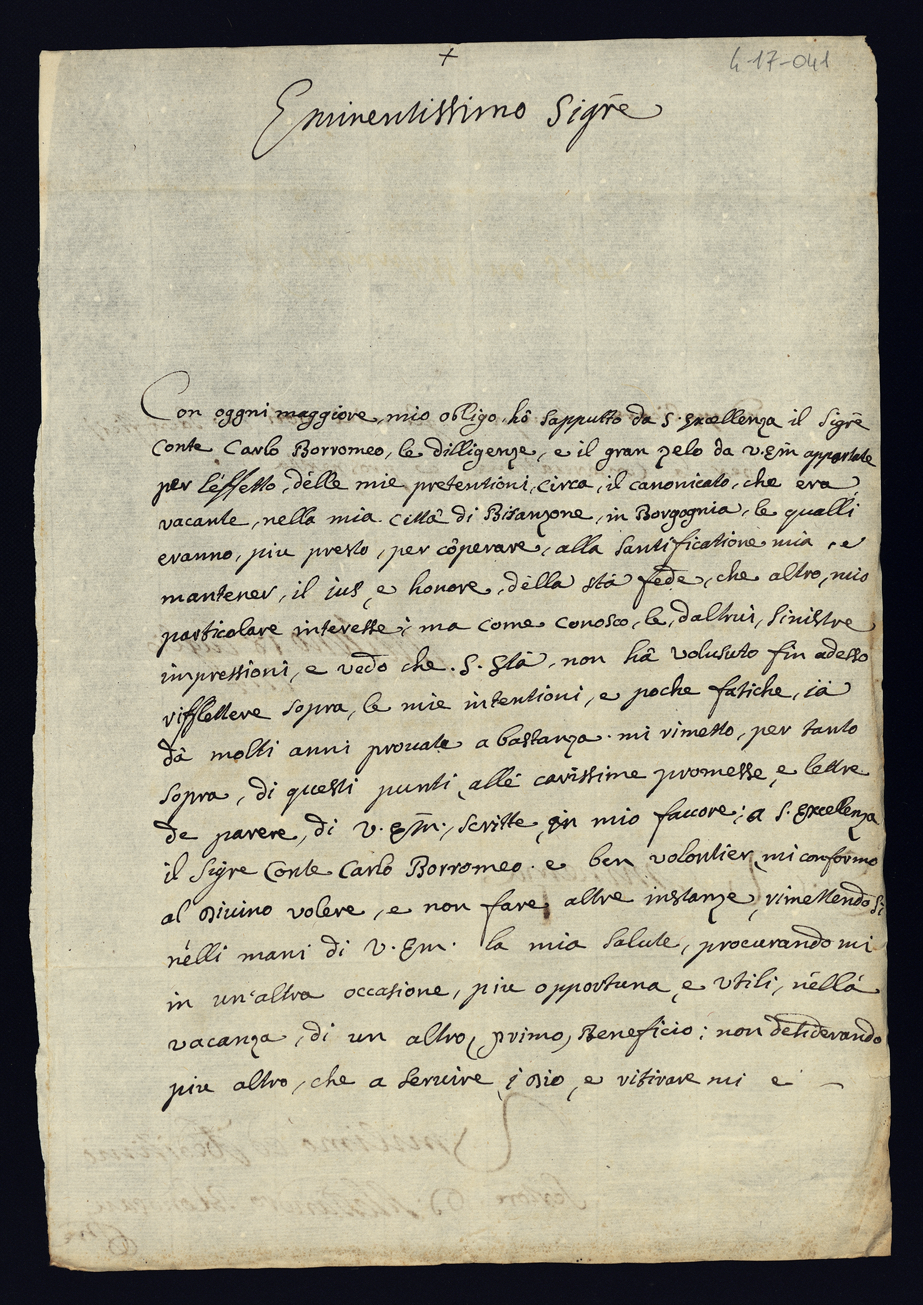 +
4-17-041
Eminentissimo Sigr̃e
Con oggni maggiore, mio obligo, hò sapputto da S. Excellenza il Sigr̃e
Conte Carlo Borromeo, le dilligenze, e il gran zelo da V. Em̃ apportate
per l'éffetto, délle mie pretentioni, Circa, il canonicato, che era
vacante, nella mia Città di Bisanzone, in Borgognia, le qualli
eranno, piu presto, per cõperare, alla Santificatione mia, e
mantener, il ius, e honore, délla stà fede, che altro, mio
particolare interesse; ma come conosco, le, d'altrui, sinistre
impressioni, e vedo che. S. Stà, non hà volusuto fin adesso
rifflettere sopra, le mie intentioni, e poche fatiche, ià
dà molti anni prouate a bastanza. mi rimetto, per tanto
sopra, di questi punti, allé carissime promesse, e lettre
de parere, di V. Em̃., scritte, in mio fauore; a S. Excellenza
il Sigre Conte Carlo Borromeo. e ben volontier, mi conformo
al Divino volere, e non fare, altre instanze, rimettendo Si
nélli mani di V. Em. la mia Salute, procurandomi
in un'altra occasione, piu opportuna, e utili, néllà
vacanza, di un altro, primo, Beneficio; non desiderando
piu altro, che a Seruire, i Dio, e ritirare mi e